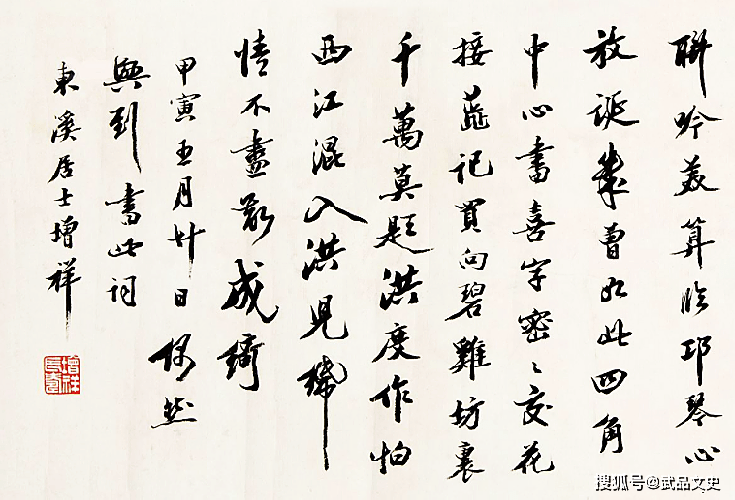 聯吟美算臨邛琴心
放誕幾曾如此四角
中心書喜字密〻交花
接蕋記買向碧雞坊裏
千萬莫題洪度作怕
西江混入洪見
情不盡最成綺
甲寅五月廿日偶然
興到書此詞
東溪居士增祥
增祥
搜狐号@武品文史